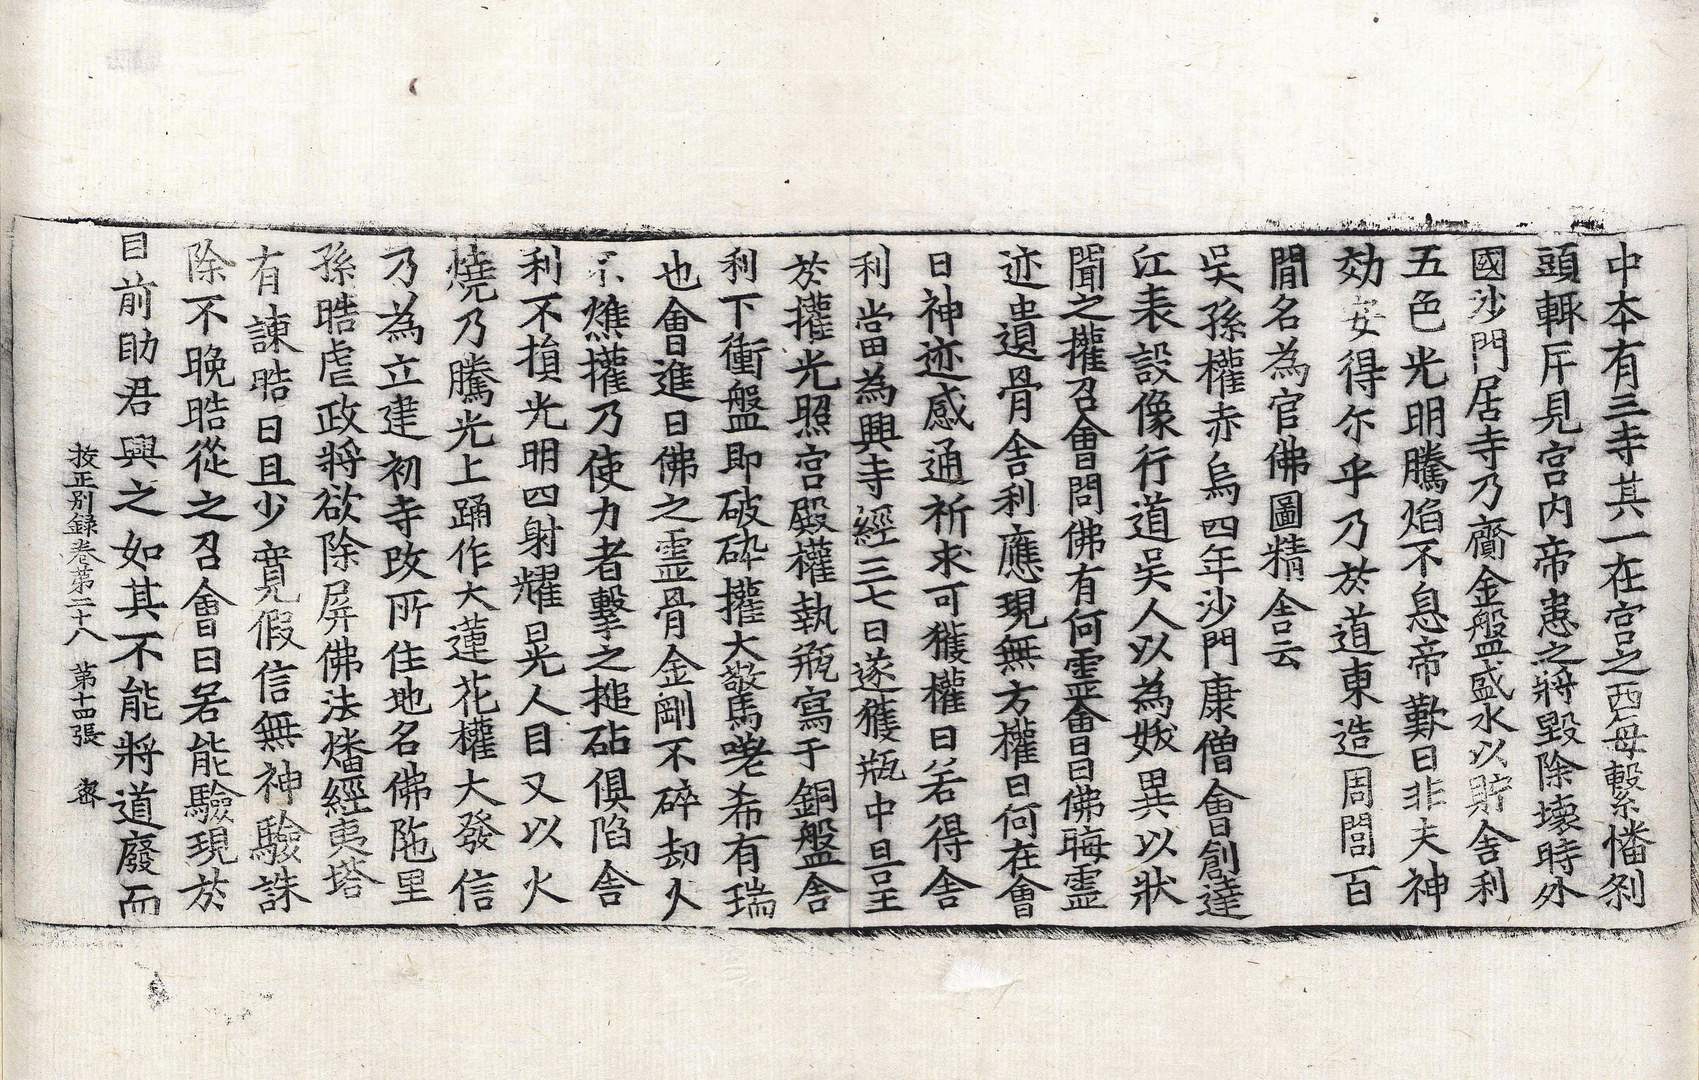 中本有三寺其一在宮之西每繫幡刹
頭輙斥見宮内帝患之將毀除壞時外
國沙門居寺乃齎金盤盛水以貯舍利
五色光明騰焰不息帝歎曰非夫神
効安得尓乎乃於道東造周閭百
閒名為官佛圖精舍云
吳孫權赤烏四年沙門康僧會創達
江表設像行道吳人以為妖異以狀
聞之權召會問佛有何靈會曰佛晦靈
迹遺骨舍利應現無方權曰何在會
曰神迹感通祈求可獲權曰若得舍
利當為興寺經三七日遂獲瓶中旦呈
於權光照宮殿權執瓶寫于銅盤舍
利下衝盤即破碎權大驚嗟希有瑞
也會進曰佛之靈骨金剛不碎劫火
不燋權乃使力者擊之搥砧俱陷舍
利不損光明四射耀晃人目又以火
燒乃騰光上踊作大蓮花權大發信
乃為立建初寺改所住地名佛陁里
孫晧虐政將欲除屏佛法燔經夷塔
有諫晧曰且少寬假信無神驗誅
除不晚晧從之召會曰若能驗現於
目前助君興之如其不能將道廢而
挍正别録卷第二十八 第十四張 密